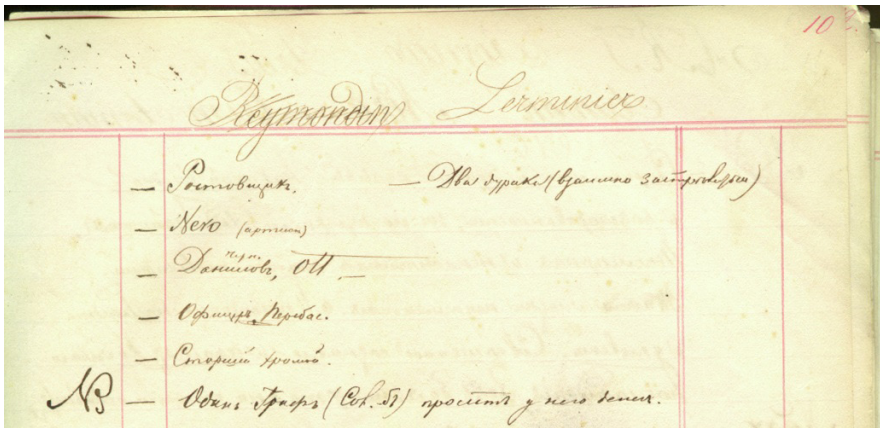 10
Reymondin Lerminier
— Ростовщикъ. — Два дурака (взаимно застрѣлены)
— Nero (артист)
— Даниловъ, Ott —
— Офицеръ
— Старший хромой.
NB — Одинъ Графъ (Сол. бъ) проситъ у него денег.